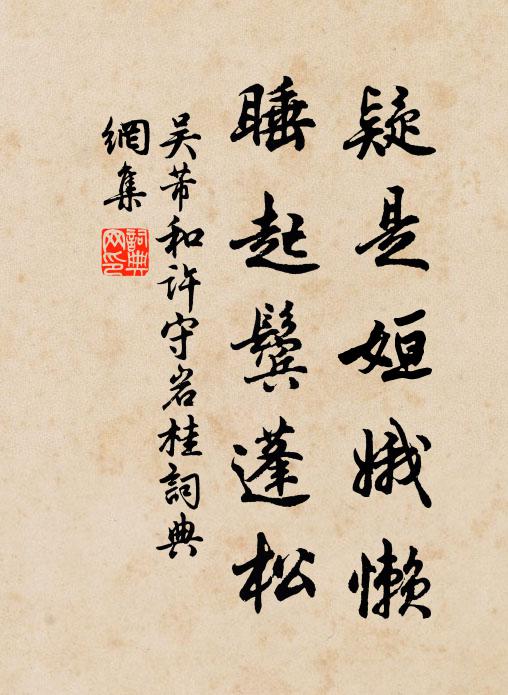 疑是姮娥懒
睡起鬓蓬松
吴芾和许守岩桂詞典
網集
詞典
网印